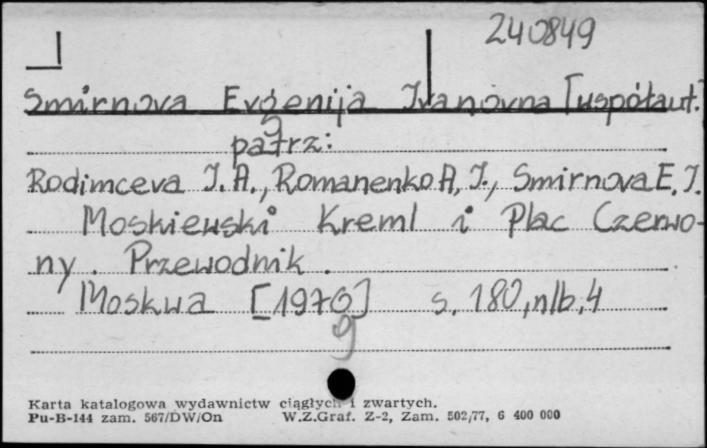 240849
Smirnova Evgenija Ivanovna [współaut.]
patrz:
Rodimceva I. A., Romanenko A. I., Smirnova E. I.
Moskiewski Kreml i Plac Czerwo-
ny. Przewodnik.
Moskwa [1970] s. 180, nlb. 4
9
Karta katalogowa wydawnictw ciągłych i zwartych.
Pu-B-144 zam. 567/DW/On W.Z.Graf. Z-2, Zam. 502/77, 6 400 000